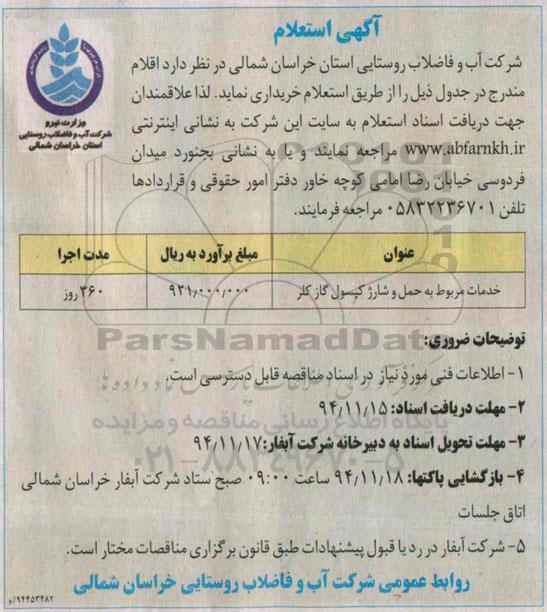 آگهی استعلام
وزارت نیرو
شرکت آب و فاضلاب روستایی
استان خراسان شمالی
شرکت آب و فاضلاب روستایی استان خراسان شمالی در نظر دارد اقلام
مندرج در جدول ذیل را از طریق استعلام خریداری نماید. لذا علاقمندان
جهت دریافت اسناد استعلام به سایت این شرکت به نشانی اینترنتی
www.abfarnkh.ir مراجعه نمایند و یا به نشانی بجنورد میدان
فردوسی خیابان رضا امامی کوچه خاور دفتر امور حقوقی و قراردادها
تلفن ۰۵۸۳۲۲۳۶۷۰۱ مراجعه فرمایند.
عنوان مبلغ برآورد به ریال مدت اجرا
خدمات مربوط به حمل و شارژ کپسول گاز کلر ۹۲۱٫۰۰۰٫۰۰۰ ۳۶۰ روز
ParsNamadData
توضیحات ضروری:
۱- اطلاعات فنی مورد نیاز در اسناد مناقصه قابل دسترسی است.
۲- مهلت دریافت اسناد: ۹۴٫۱۱٫۱۵
پایگاه اطلاع رسانی مناقصه و مزایده
۳- مهلت تحویل اسناد به دبیرخانه شرکت آبفار: ۹۴٫۱۱٫۱۷
۰۲۱-۸۸۳۴۹۶۷۰-۵
۴- بازگشایی پاکتها: ۹۴٫۱۱٫۱۸ ساعت ۰۹:۰۰ صبح ستاد شرکت آبفار خراسان شمالی
اتاق جلسات
۵- شرکت آبفار در رد یا قبول پیشنهادات طبق قانون برگزاری مناقصات مختار است.
روابط عمومی شرکت آب و فاضلاب روستایی خراسان شمالی
۹۴۴۵۳۴۸۲/و